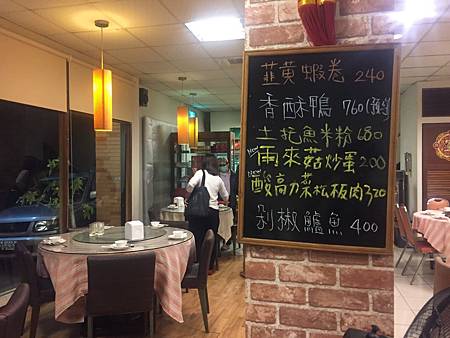 韮黄蝦卷 240
香酥鴨 760(預)
土托魚米粉 680
New 雨來菇炒蛋 200
New 酸高力菜松板肉 320
剁椒鱸魚 400